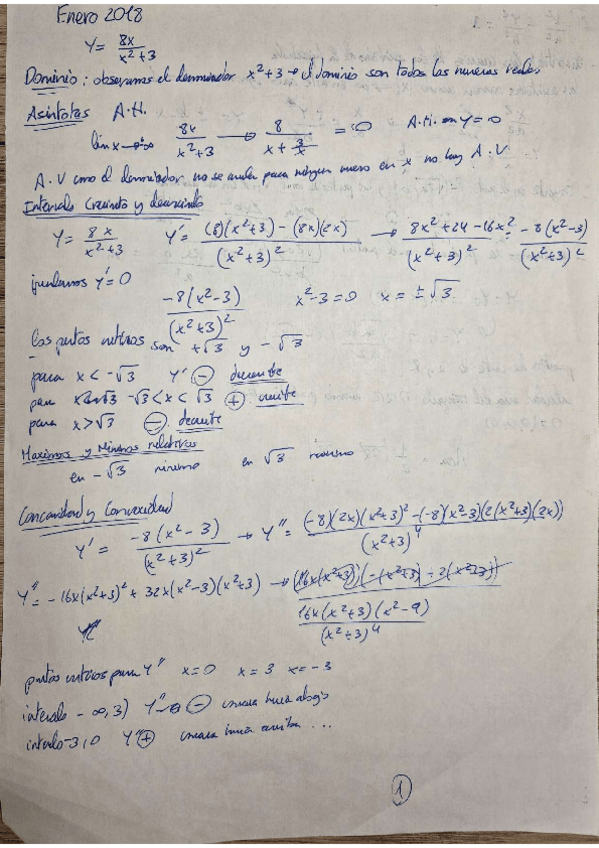 Enero 2018
Y = 8x/(x²+3)
Dominio: observamos el denominador x²+3 → el dominio son todos los numeros reales
Asintotas A.H.
lim x→±∞ 8x/(x²+3) → 8/(x + 3/x) = 0 A.H. en y=0
A.V como el denominador no se anula para ningun numero en x no hay A.V.
Intervalo Creciendo y decreciendo
Y = 8x/(x²+3) Y' = ((8)(x²+3) - (8x)(2x))/(x²+3)² → (8x²+24-16x²)/(x²+3)² = -8(x²-3)/(x²+3)²
igualamos Y'=0
-8(x²-3)/(x²+3)² x²-3=0 x = ±√3
los puntos criticos son +√3 y -√3
para x < -√3 Y' ⊖ decreciente
para -√3 < x < √3 ⊕ creciente
para x > √3 ⊖ decreciente
Maximos y Minimos relativos
en -√3 minimo en √3 maximo
Concavidad y Convexidad
Y' = -8(x²-3)/(x²+3)² → Y'' = ((-8)(2x)(x²+3)² - (-8)(x²-3)(2(x²+3)(2x))/(x²+3)⁴
Y'' = -16x(x²+3)² + 32x(x²-3)(x²+3) →
16x(x²+3)(x²-9)/(x²+3)⁴
Y''
puntos criticos para Y'' x=0 x=3 x=-3
intervalo -∞,3) Y'' ⊖ concava hacia abajo
intervalo -3,0 Y'' ⊕ concava hacia arriba ...
1